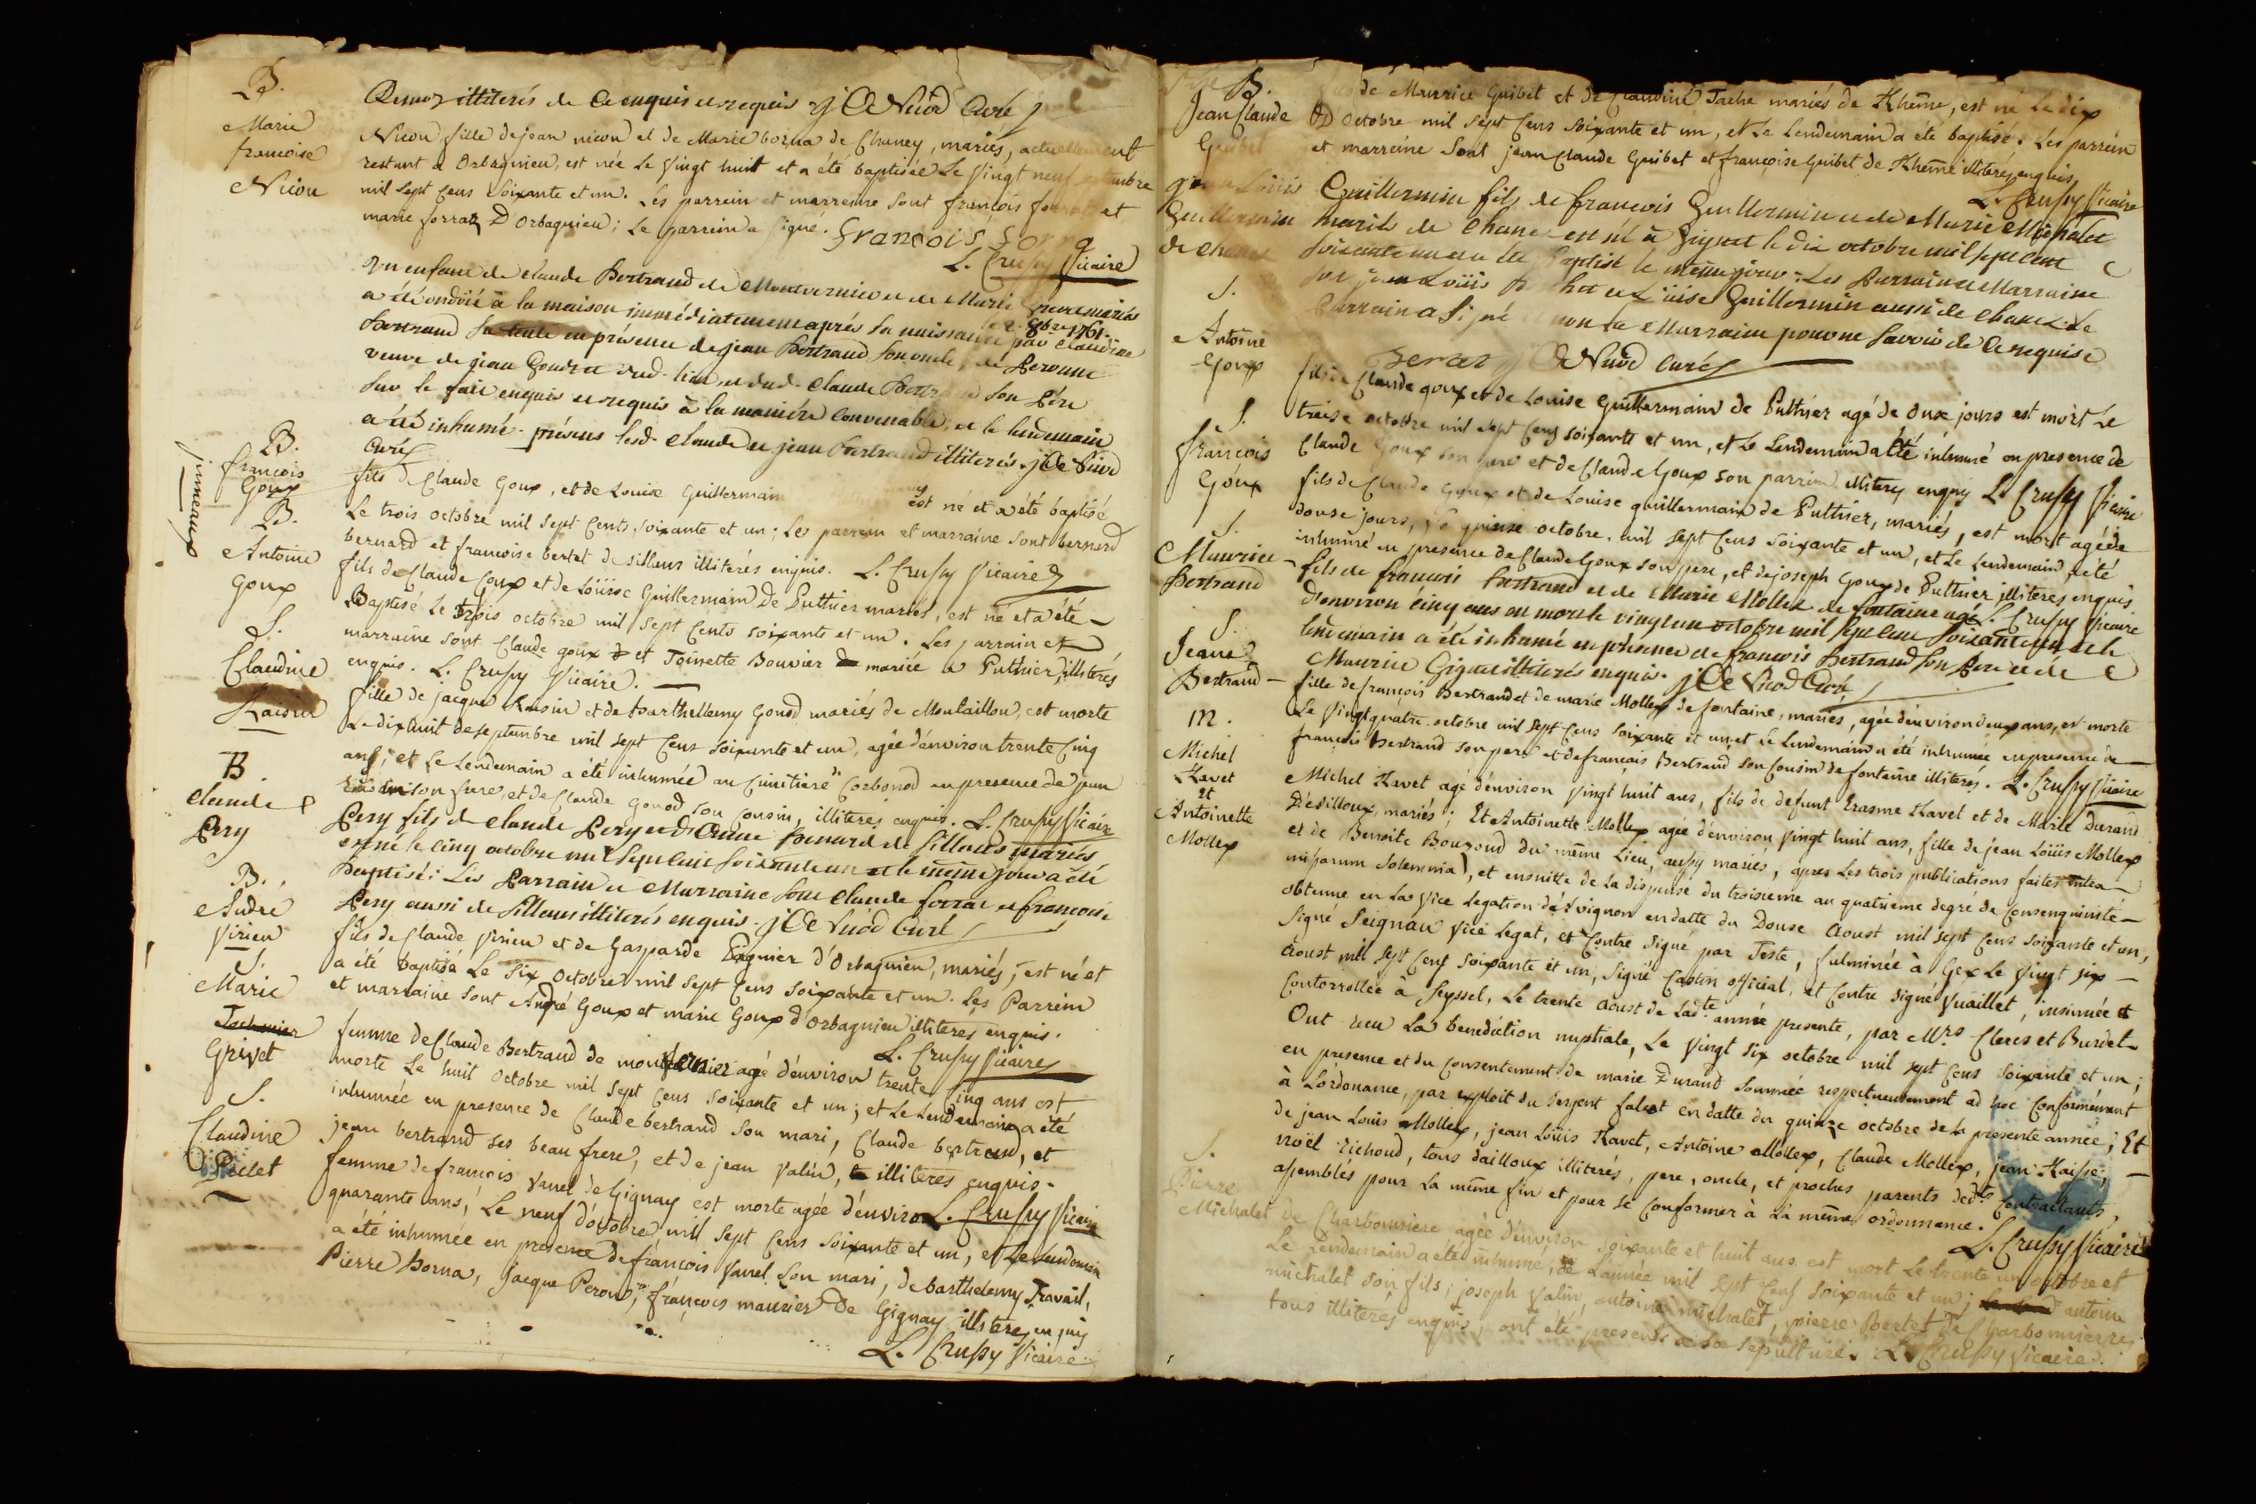 B.
Marie
francoise
Nicou
Remoz illiterés de Ce enquis et requis j C Nicod Curé
Nicou fille de jean nicou et de Marie borna de Chaney, mariés, actuellement
restant a Orbagnieu, est née Le Vingt huit et a été baptisée Le Vingt neuf septembre
mil sept Cens Soixante et un. Les parrein et marreine sont françois et
marie forraz D Orbagnieu; Le parrein a signé. françois
L. Crussy Vicaire
Un enfant de claude Bertrand de Montvernier et de Marie mariés
a été ondoié à la maison immédiatement aprés sa naissance le 2. 8bre 1761. par Claudine
Bertrand sa tante en présence de jean Bertrand son oncle, de Peronne
veuve de jean Goudet dud. lieu et dud. Claude Bertrand son Pére
sur le fait enquis et requis à la maniére Convenable, et le lendemain
a été inhumé. présens lesd. Claude et jean Bertrand illiterés. j C Nicod
Curé
jumeaux
B.
francois
Goux
fils de Claude Goux, et de Louise Guillermain est ne et a été baptisé
Le trois octobre mil sept Cents soixante et un; Les parrein et marraine sont bernard
bernard et francoise bertet de silleux illiterés enquis. L. Crussy Vicaire
B.
Antoine
goux
fils de Claude Goux et de Loüise Guillermain De Puthier mariés, est né et a été
Baptisé Le trois octobre mil sept Cents soixante et un. Les parrain et
marraine sont Claude goux et Toinette Bouvier mariée a Puthier, illiterés
enquis. L. Crussy Vicaire.
S.
Claudine
Raisin
fille de jacque Raisin et de barthellemy Gonod mariés de Montaillou, est morte
Le dixhuit de septembre mil sept Cens soixante et un, agée d'environ trente Cinq
ans, et Le Lendemain a été inhumée au Cimitiere Corbonod en presence de jean
Raisin son frere, et de Claude Gonod son Cousin, illiteres enquis. L. Crussy Vicaire
B
claude
Pery
Pery fils de Claude Pery et d'Anne Bernard de Silleux mariés
est né le Cinq octobre mil sept cent soixante un et le même jour a été
baptisé: Les Parrain et Marraine sont Claude forraz et françoise
Pery aussi de silleux illiterés enquis. j C Nicod Curé
B.
Andre
Virieu
fils de Claude Virieu et de Gasparde Pagnier d'Orbagnieu, mariés, est né et
a été baptisé Le Six Octobre mil sept Cens soixante et un. Les Parrein
et marraine sont André Goux et marie Goux d'Orbagnieu illiteres enquis.
L. Crussy Vicaire
S.
Marie
Grivet
femme de Claude Bertrand de monvernier agé d'environ trente Cinq ans est
morte Le huit Octobre mil sept Cens soixante et un; et Le Lendemain a été
inhumée en presence de Claude bertrand son mari, Claude bertrand, et
jean bertrand ses beau frere, et de jean Valin, illiteres enquis.
L. Crussy Vicaire
S.
Claudine
Poclet
femme de françois Vanel de Gignay est morte agée d'environ
quarante ans, Le neuf d'octobre mil sept Cens soixante et un, et Le Lendemain
a été inhumée en presence de françois Vanel son mari, de barthelemy Travail,
Pierre borna, jacque Peroud, françois maurier De Gignay illiteres enquis
L. Crussy Vicaire
B.
Jean Claude
Guibet
de Maurice Guibet et de Claudine Tache mariés de Rhême, est né Le dix
Octobre mil sept Cens soixante et un, et Le Lendemain a été baptisé. Les parrein
et marreine sont jean Claude Guibet et françoise Guibet de Rhême illiterés enquis
L. Crussy Vicaire
Loüis
Guillermin
de chanex
Guillermin fils de françois Guillermin et de Marie Michalet
mariés de Chanex est né à Gignez le dix octobre mil sept cent
soixante un et a été baptisé le même jour: Les Parrain et Marraine
sont jean Loüis et Loüise Guillermin aussi de Chanex. Le
Parrain a Signé non la Marraine pour ne savoir de Ce requise
j C Nicod Curé
S.
Antoine
Goux
fils de Claude goux et de Louise Guillermain de Puthier agé de onze jours est mort Le
treise octobre mil sept Cens soixante et un, et Le Lendemain a été inhumé en presence de
Claude Goux son pere et de Claude Goux son parrein illiteres enquis L. Crussy Vicaire
S.
françois
Goux
fils de Claude Goux et de Louise guillermain de Puthier, mariés, est mort agé de
douse jours, Le quinse octobre, mil sept Cens soixante et un, et Le Lendemain a été
inhumé en presence de Claude Goux son pere, et de joseph Goux de Puthier, illiteres enquis
L. Crussy Vicaire
S.
Maurice
Bertrand
fils de françois Bertrand et de Marie Mollex de fontaine agé
d'environ cinq ans est mort le vingt un octobre mil sept cent soixante un et le
lendemain a été inhumé en présence de françois Bertrand son Pere et de
Maurice Gignet illiterés enquis. j C Nicod Curé
S.
Jeane
Bertrand
fille de françois Bertrand et de marie Mollex de fontaine, mariés, agée d'environ deux ans, est morte
Le Vingt quatre octobre mil sept Cens soixante et un, et Le Lendemain a été inhumée en presence de
françois bertrand son pere et de françois bertrand son Cousin de fontaine illiterés. L. Crussy Vicaire
M.
Michel
Ravet
et
Antoinette
Mollex
Michel Ravet agé d'environ Vingt huit ans, fils de defunt Erasme Ravet et de Marie Durand
D'eilloux, mariés; Et Antoinette Mollex agée d'environ Vingt huit ans, fille de jean Loüis Mollex
et de Benoite Bouzoud du même Lieu, aussy mariés, apres Les trois publications faites intra
missarum Solemnia, et ensuitte de La dispense du troisieme au quatrieme degré de Consenguinité
obtenue en La Vice Legation d'Avignon en datte du Douse Aoust mil sept Cens soixante et un,
Signé Seignau Vice Legat, et Contre Signé par Teste, fulminée à Gex Le Vingt six
Aoust mil sept Cens soixante et un, signé Castin official, et Contre signé Vuaillet, insinuée et
Contorrollée a Seyssel, Le trente Aoust de Ladte année presente, par Mrs Clercs et Burdet
Ont recu La benediction nuptiale, Le Vingt six octobre mil sept Cens soixante et un;
en presence et du Consentement de marie Durand Sommée respectueusement ad hoc Conformément
à L'ordonance, par exploit du sergent falcot en datte du quinze octobre de la presente année; Et
de jean Loüis Mollex, jean Loüis Ravet, Antoine Mollex, Claude Mollex, jean Raisse,
noël richond, tous d'ailloux illiterés, pere, oncle, et proches parents desdts Contractants,
assemblés pour La même fin et pour se Conformer à La même ordonnance.
L. Crussy Vicaire
S.
Pierre
Michalet
de Charbonniere agée d'environ soixante et huit ans est mort Le trente un octobre et
Le Lendemain a été inhumé, de L'année mil sept Cens soixante et un; antoine
michalet son fils; joseph Valin, antoine michalet, pierre bertet de Charbonnierres
tous illiterés enquis, ont été presents a sa sepulture. L. Crussy Vicaire.